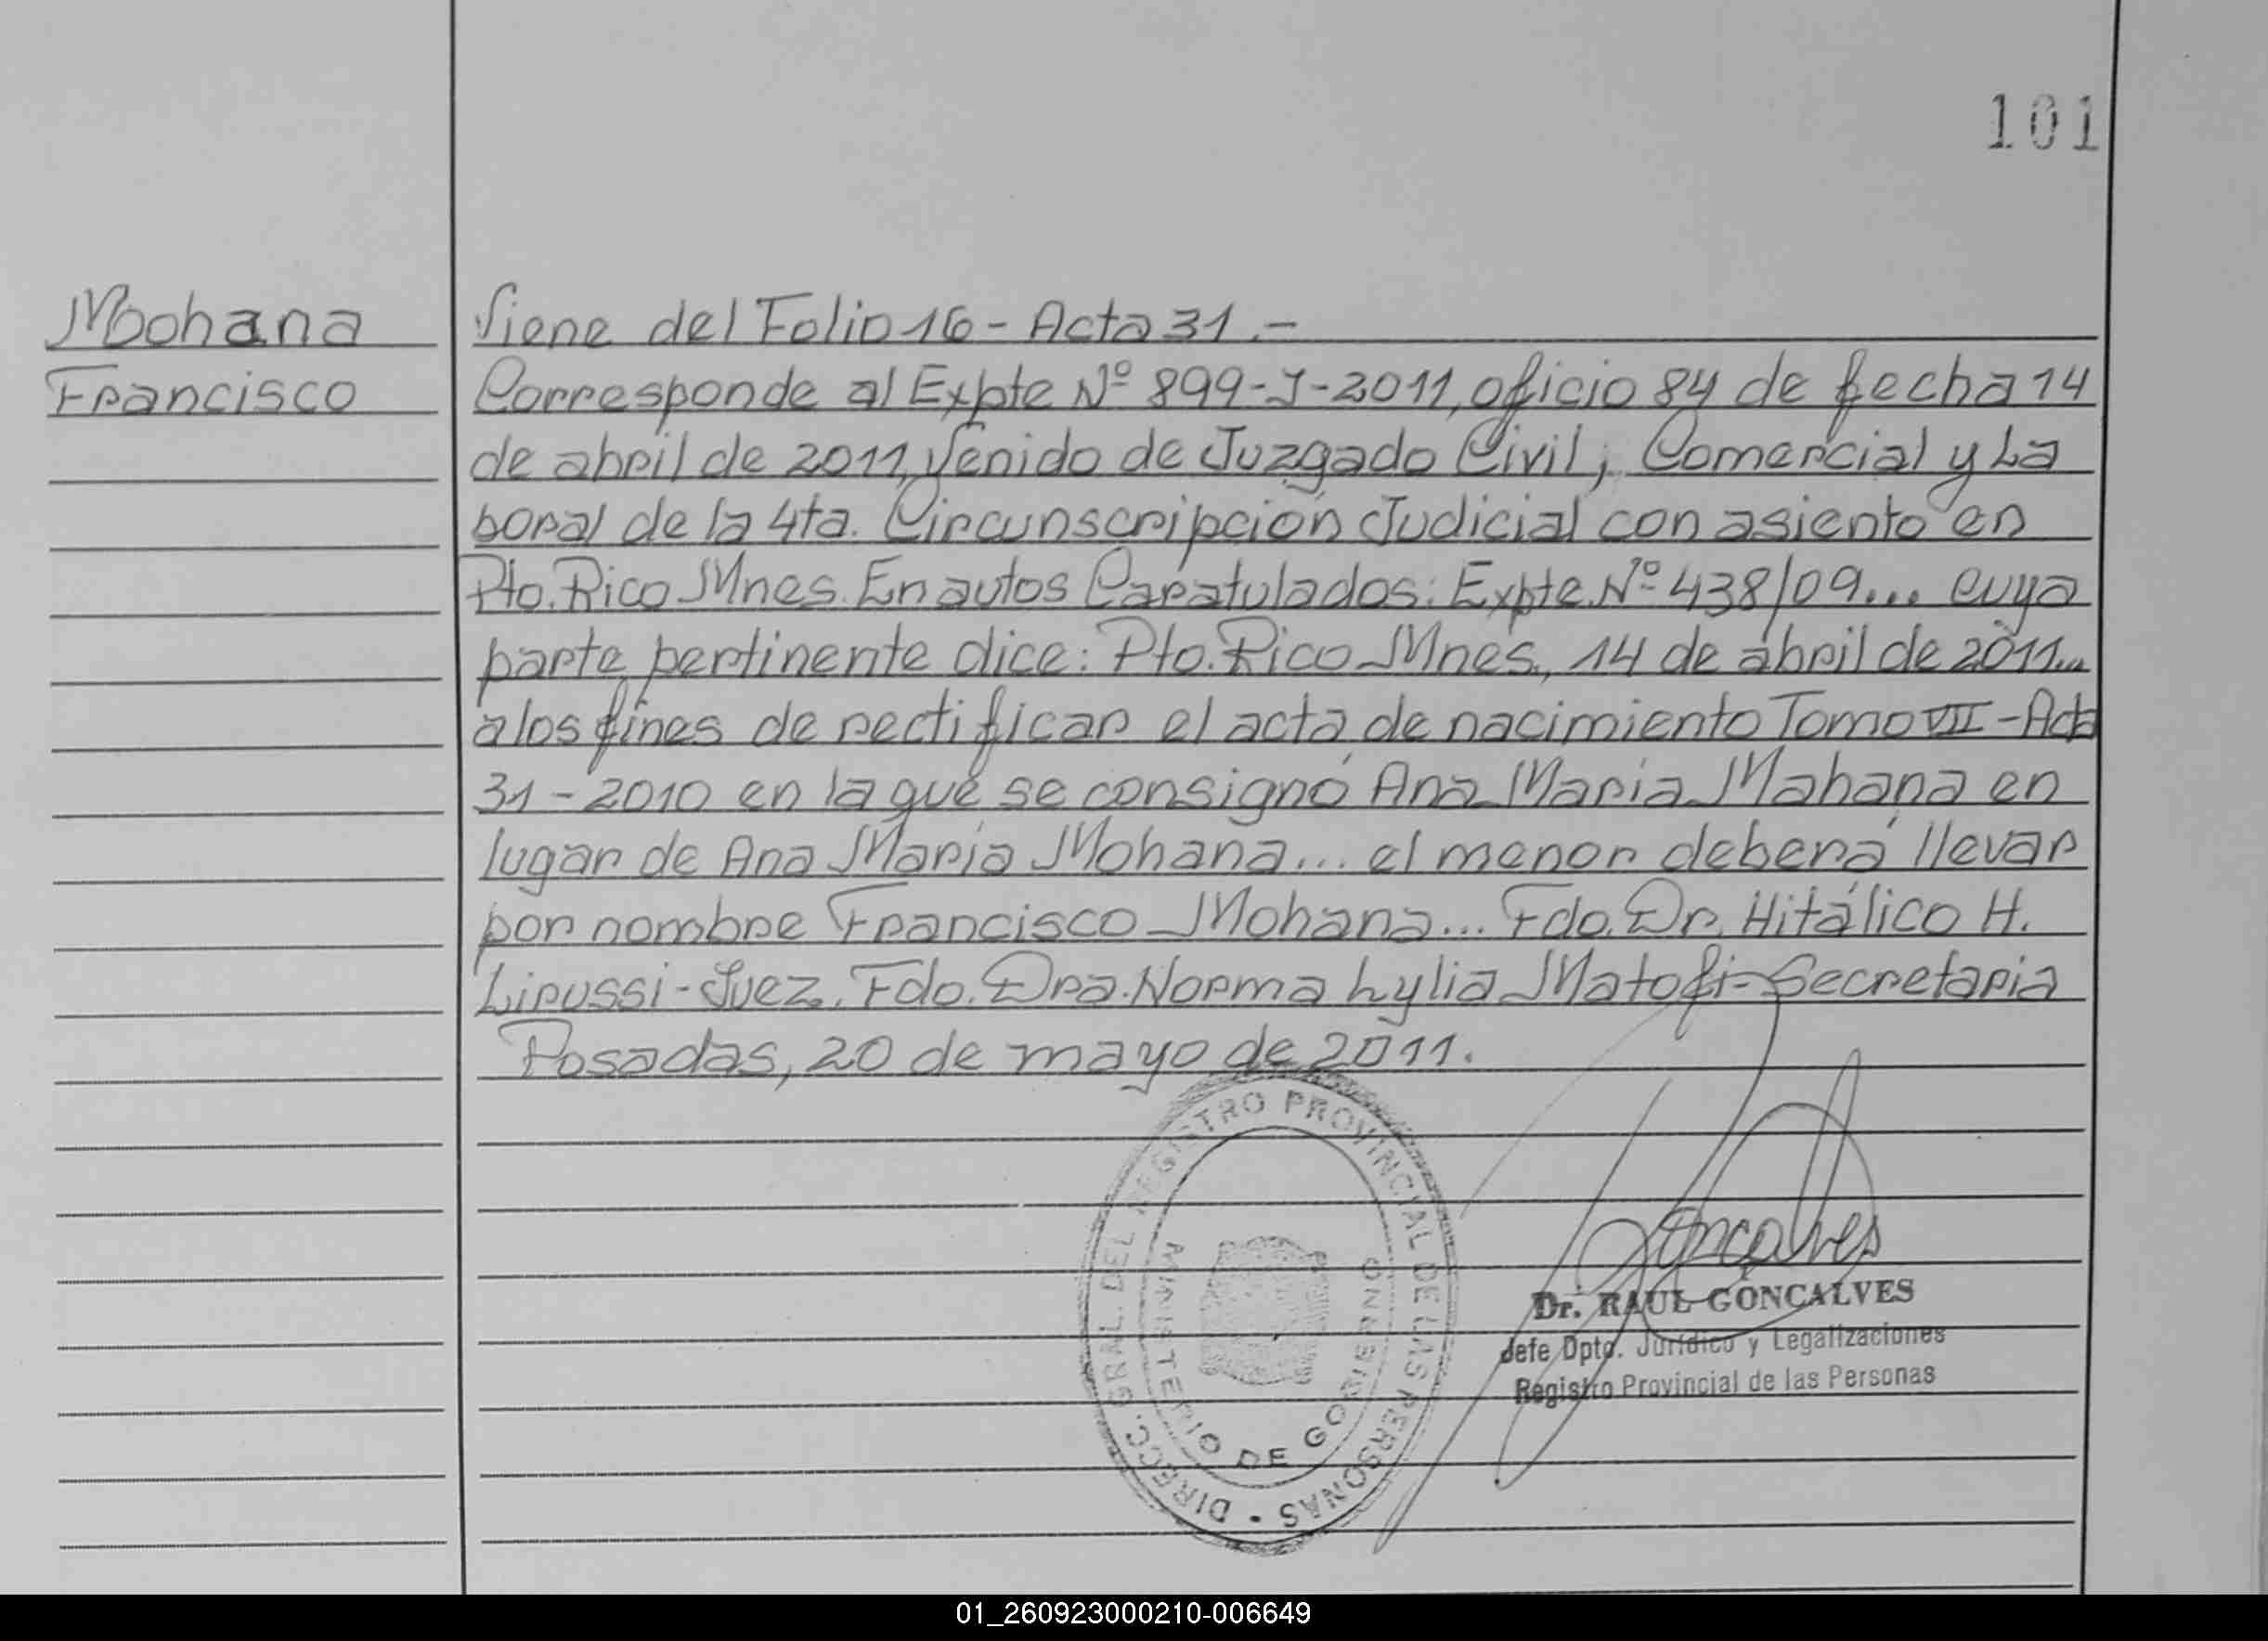 101
Moohana
Francisco
Viene del Folio 16 - Acta 31.-
Corresponde al Expte Nº 899-J-2011, oficio 84 de fecha 14
de abril de 2011, Venido de Juzgado Civil, Comercial y La
boral de la 4ta. Circunscripción Judicial con asiento en
Pto. Rico Mnes. En autos Caratulados: Expte. Nº 438/09... cuya
parte pertinente dice: Pto. Rico Mnes, 14 de abril de 2011...
a los fines de rectificar el acta de nacimiento Tomo VII - Acta
31 - 2010 en la que se consignó Ana Maria Mahana en
lugar de Ana Maria Mohana... el menor deberá llevar
por nombre Francisco Mohana... Fdo. Dr. Hitálico H.
Lirussi - Juez. Fdo. Dra. Norma Lylia Matofi - Secretaria
Posadas, 20 de mayo de 2011.
DIRECC. GRAL. DEL REGISTRO PROVINCIAL DE LAS PERSONAS
MINISTERIO DE GOBIERNO
Goncalves
Dr. RAUL GONCALVES
Jefe Dpto. Jurídico y Legalizaciones
Registro Provincial de las Personas
01_260923000210-006649